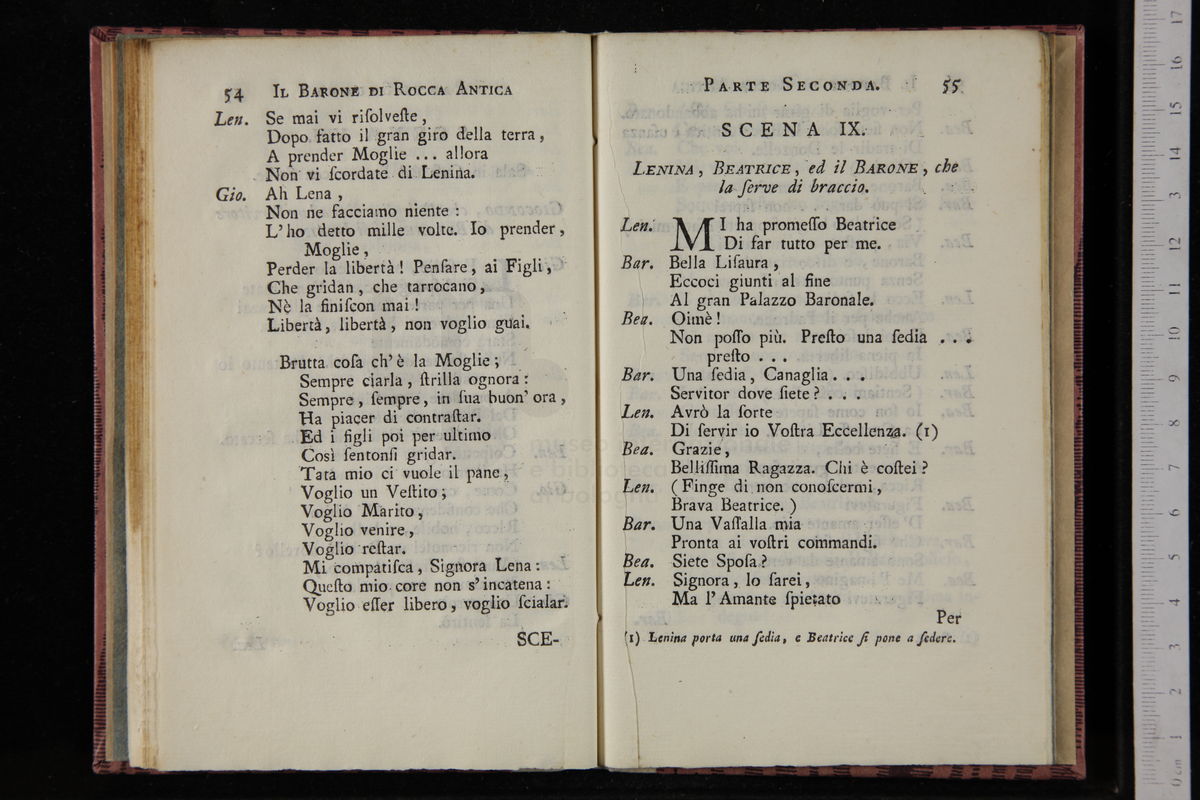 54 IL BARONE DI ROCCA ANTICA
Len. Se mai vi riſolveſte,
Dopo fatto il gran giro della terra,
A prender Moglie ... allora
Non vi ſcordate di Lenina.
Gio. Ah Lena,
Non ne facciamo niente:
L'ho detto mille volte. Io prender,
Moglie,
Perder la libertà! Penſare, ai Figli,
Che gridan, che tarrocano,
Nè la finiſcon mai!
Libertà, libertà, non voglio guai.
Brutta coſa ch'è la Moglie;
Sempre ciarla, ſtrilla ognora:
Sempre, ſempre, in ſua buon' ora,
Ha piacer di contraſtar.
Ed i figli poi per ultimo
Così ſentonſi gridar.
Tata mio ci vuole il pane,
Voglio un Veſtito;
Voglio Marito,
Voglio venire,
Voglio reſtar.
Mi compatiſca, Signora Lena:
Queſto mio core non s'incatena:
Voglio eſſer libero, voglio ſcialar.
SCE-
PARTE SECONDA. 55
SCENA IX.
LENINA, BEATRICE, ed il BARONE, che
la ſerve di braccio.
Len. MI ha promeſſo Beatrice
Di far tutto per me.
Bar. Bella Liſaura,
Eccoci giunti al fine
Al gran Palazzo Baronale.
Bea. Oimè!
Non poſſo più. Preſto una ſedia ...
preſto ...
Bar. Una ſedia, Canaglia ...
Servitor dove ſiete? ...
Len. Avrò la ſorte
Di ſervir io Voſtra Eccellenza. (1)
Bea. Grazie,
Belliſſima Ragazza. Chi è coſtei?
Len. (Finge di non conoſcermi,
Brava Beatrice.)
Bar. Una Vaſſalla mia
Pronta ai voſtri commandi.
Bea. Siete Spoſa?
Len. Signora, lo ſarei,
Ma l'Amante ſpietato
Per
(1) Lenina porta una ſedia, e Beatrice ſi pone a ſedere.